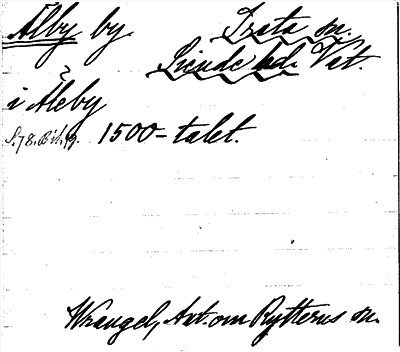 Älby by Irsta sn.
Siende hd. Vst.
i Åleby
S. 78. Bil. 19. 1500-talet.
Wrangel, Ant. om Rytterns sn.